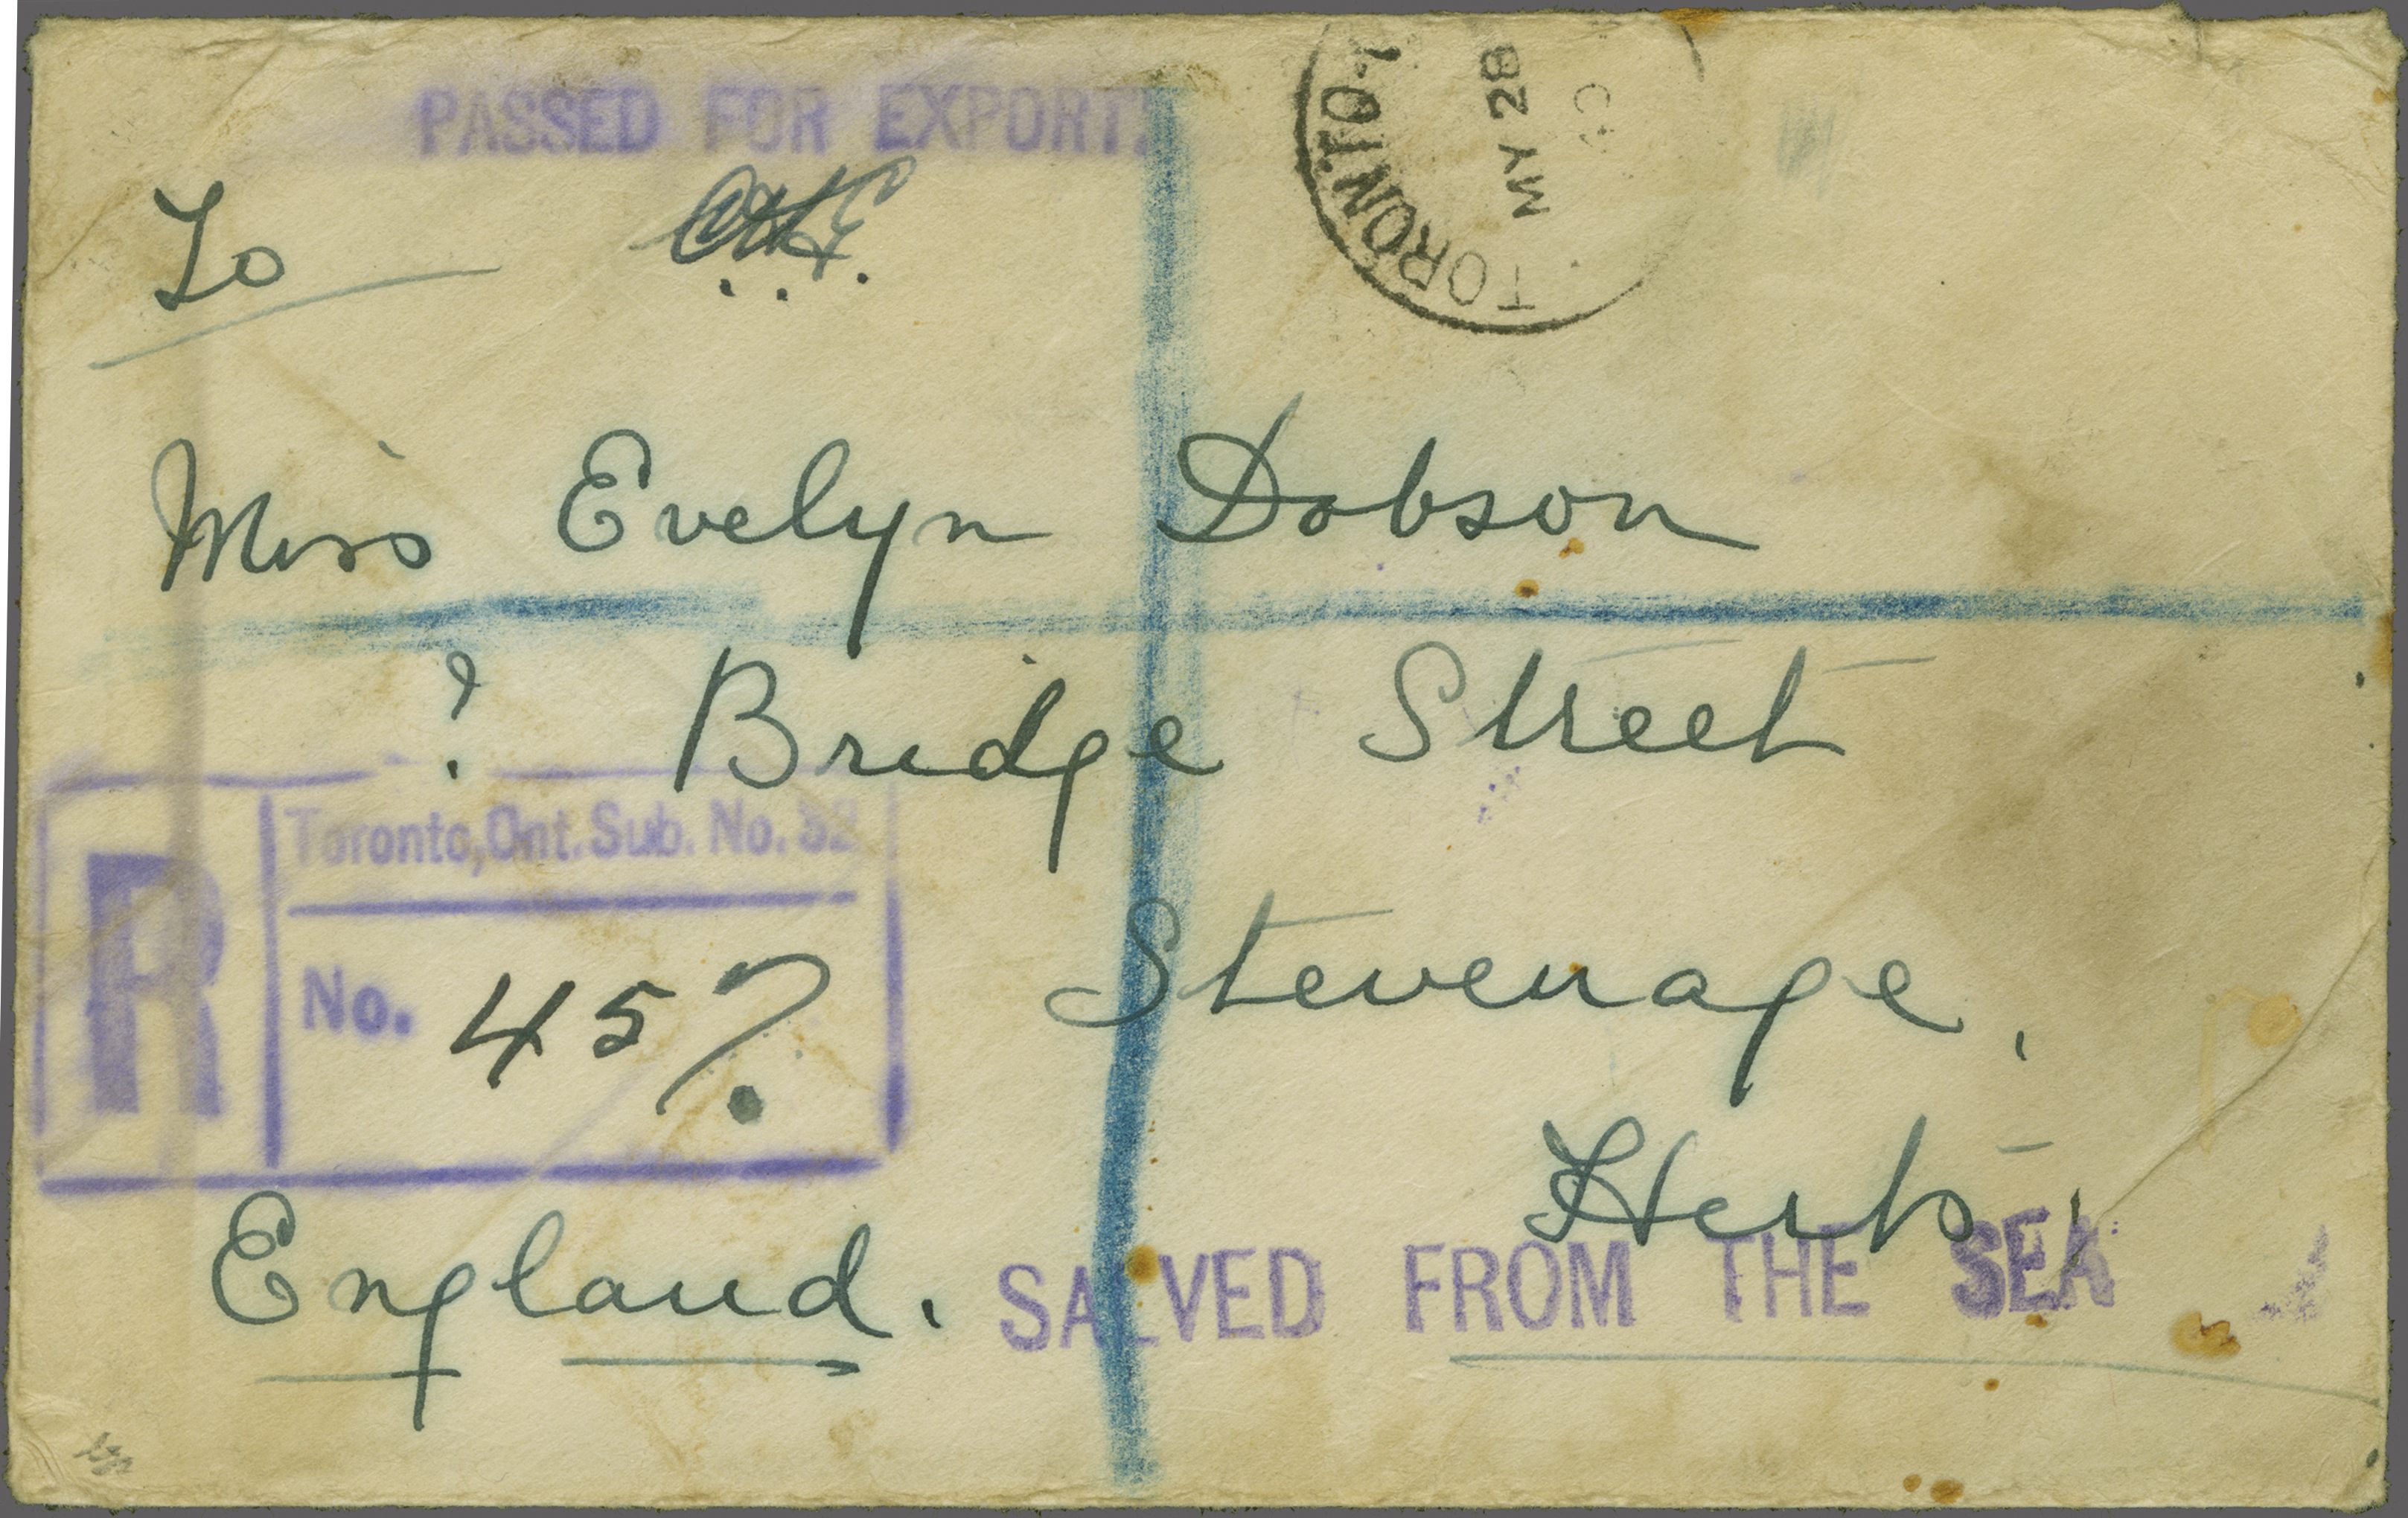 PASSED FOR EXPORT.
TORONTO-1
MY 28
To
Miss Evelyn Dobson
? Bridge Street
Stevenage,
Herts,
England.
R
Toronto, Ont. Sub. No. 52
No. 457
SALVED FROM THE SEA